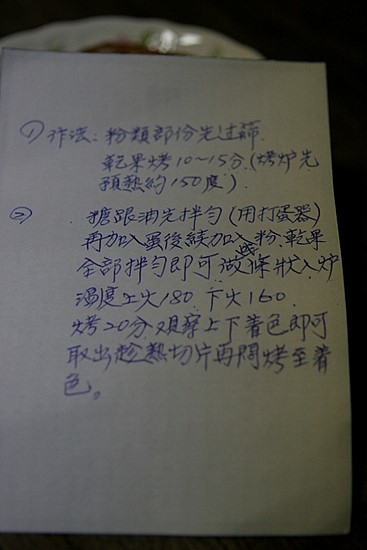 ① 作法:粉類部份先过篩
乾果烤10~15分(烤炉先
預熱約150度).
② 糖跟油先拌勻(用打蛋器)
再加入蛋後續加入粉、乾果
全部拌勻即可做條狀入炉
温度上火180.下火160.
烤20分观察上下着色即可
取出趁熱切片再悶烤至着
色。